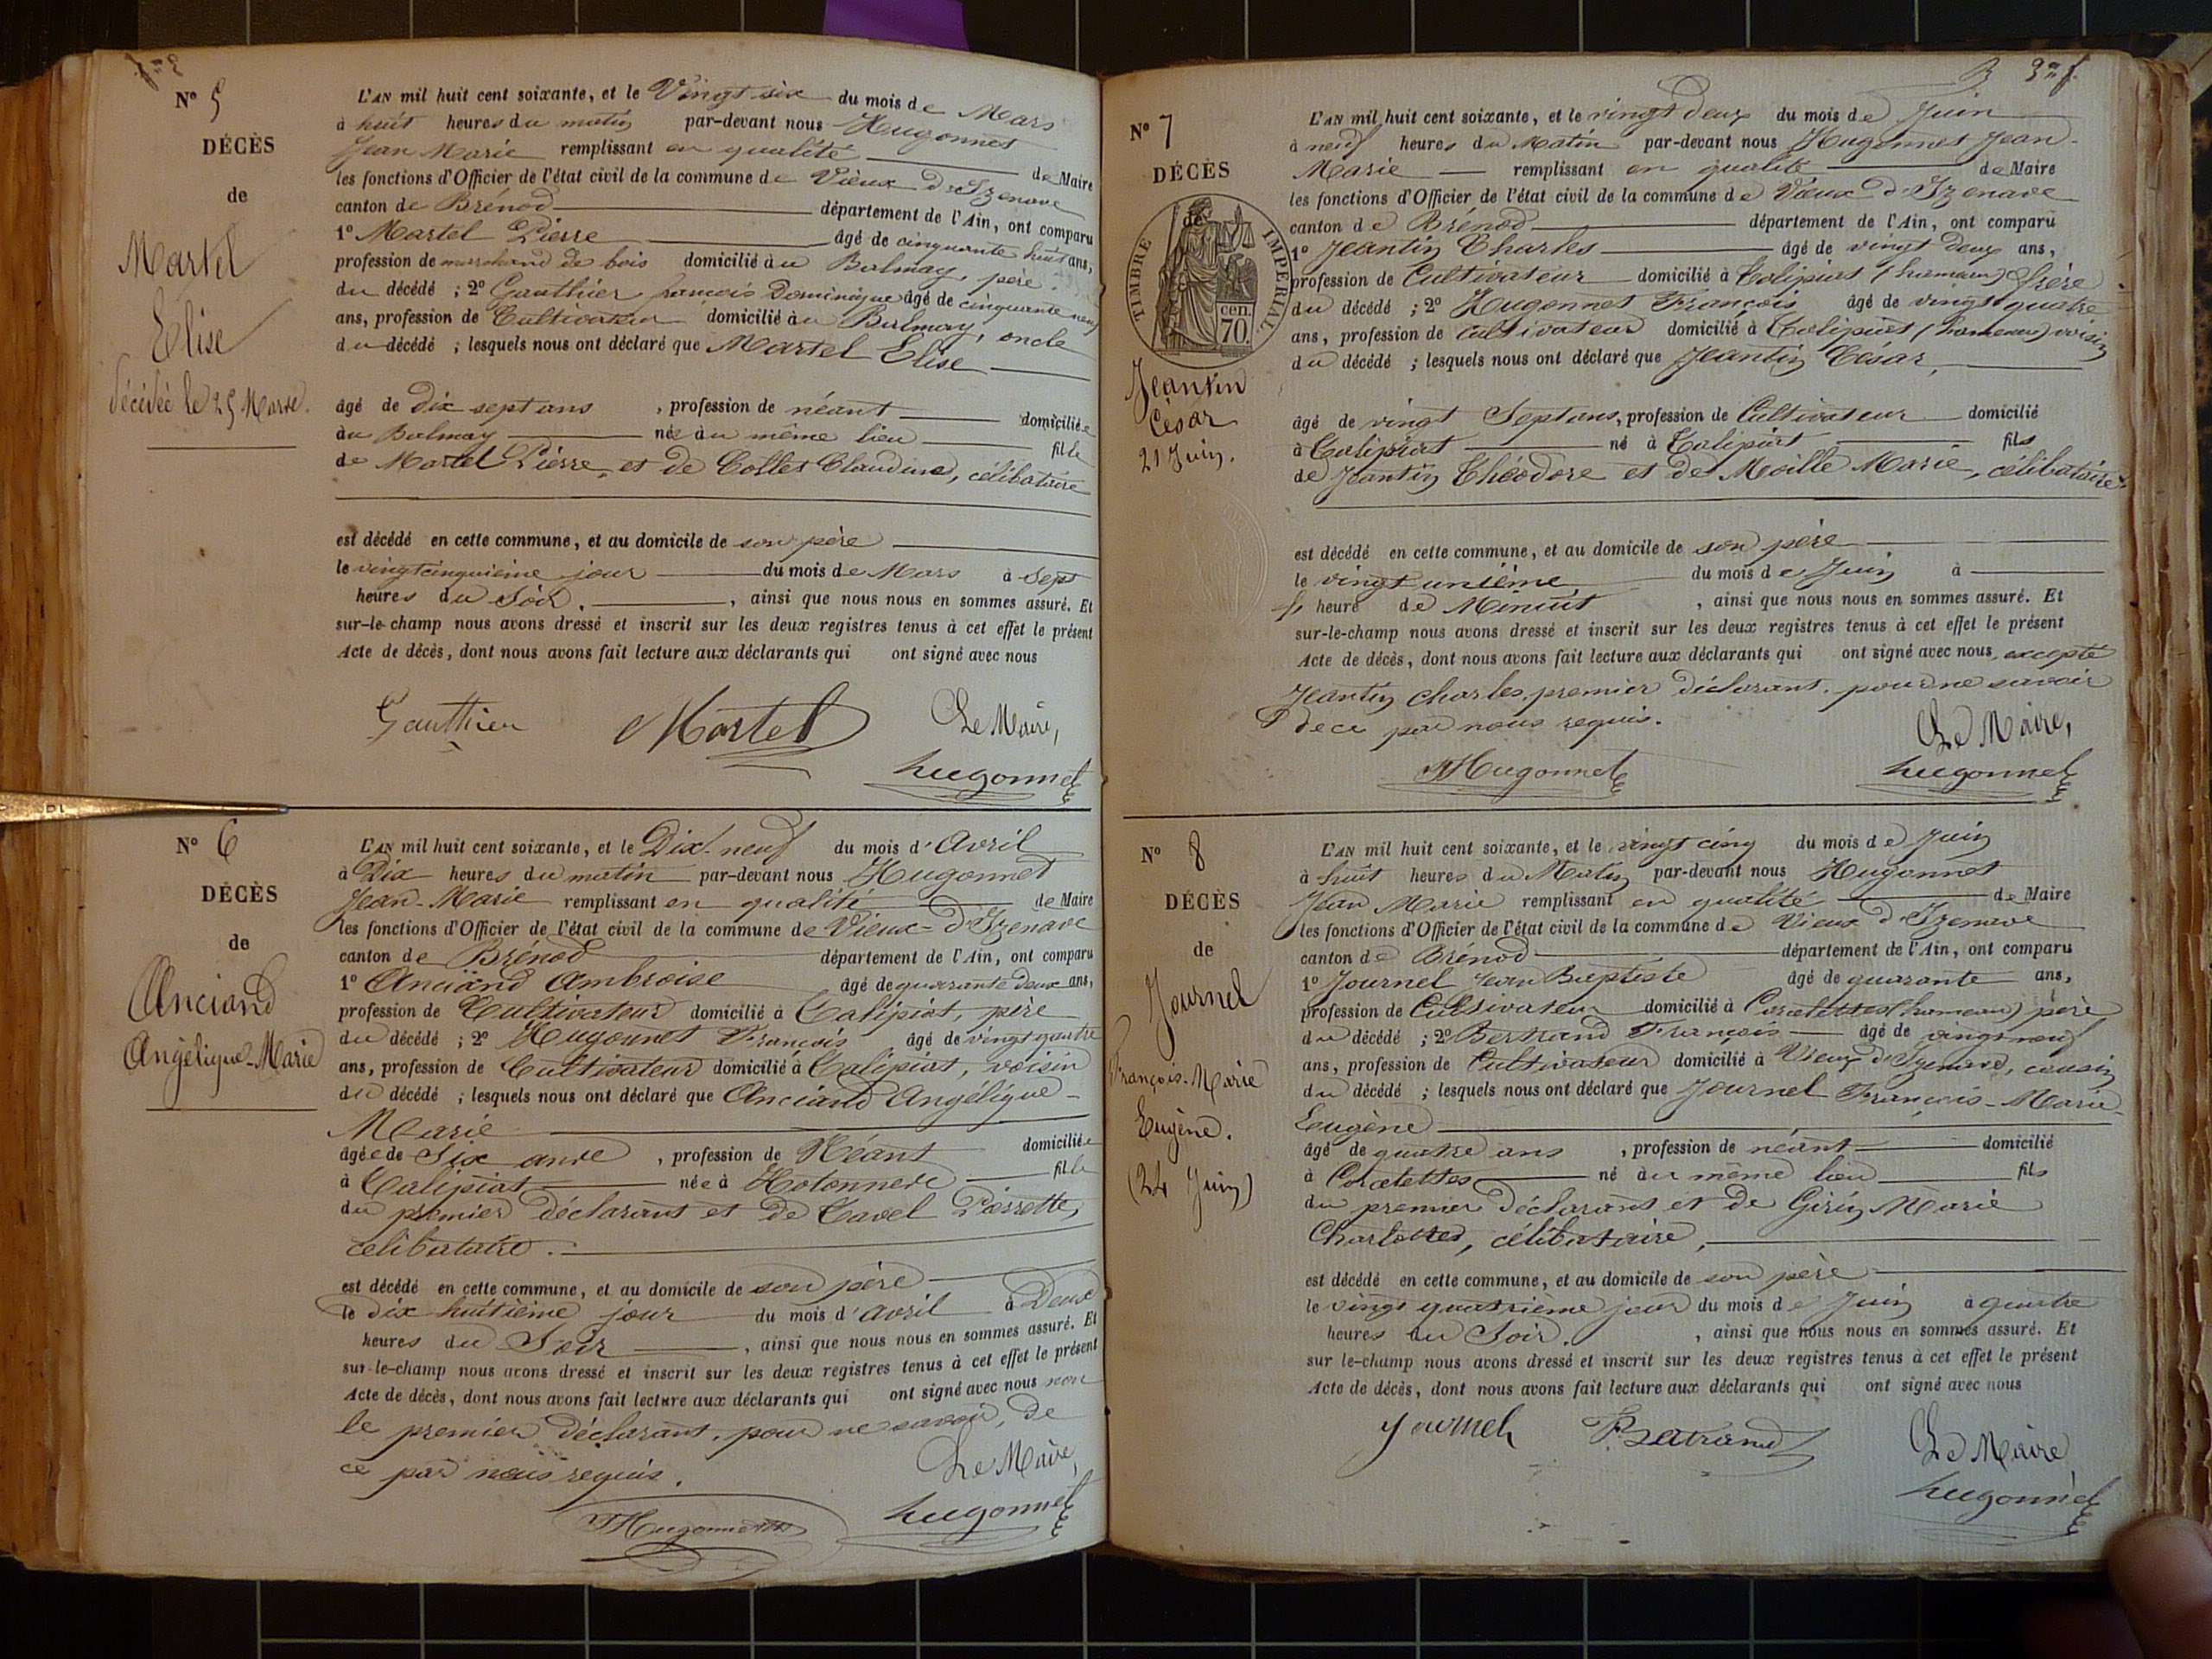 N° 5
DÉCÈS
de
Martel
Elise
décédée le 25 Mars.
L'AN mil huit cent soixante, et le Vingt six du mois de Mars
à huit heures du matin par-devant nous Hugonnet
Jean Marie remplissant en qualité de Maire
les fonctions d'Officier de l'état civil de la commune de Vieux d'Izenave
canton de Brénod département de l'Ain, ont comparu
1° Martel Pierre âgé de cinquante huit ans,
profession de marchand de bois domicilié au Balmay, père
du décédé ; 2° Gauthier françois Dominique âgé de cinquante neuf
ans, profession de Cultivateur domicilié au Balmay, oncle
du décédé ; lesquels nous ont déclaré que Martel Elise
âgé de dix sept ans , profession de néant domiciliée
au Balmay née au même lieu fille
de Martel Pierre et de Collet Claudine, célibataire
est décédé en cette commune, et au domicile de son père
le vingt cinquième jour du mois de Mars à Sept
heures du Soir. , ainsi que nous nous en sommes assuré. Et
sur-le-champ nous avons dressé et inscrit sur les deux registres tenus à cet effet le présent
Acte de décès, dont nous avons fait lecture aux déclarants qui ont signé avec nous
Gauthier Martel Le Maire,
hugonnet
N° 6
DÉCÈS
de
Anciand
Angélique-Marie
L'AN mil huit cent soixante, et le Dix-neuf du mois d'Avril
à Dix heures du matin par-devant nous Hugonnet
Jean-Marie remplissant en qualité de Maire
les fonctions d'Officier de l'état civil de la commune de Vieux-d'Izenave
canton de Brénod département de l'Ain, ont comparu
1° Anciand Ambroise âgé de quarante deux ans,
profession de Cultivateur domicilié à Calipiat, père
du décédé ; 2° Hugonnet François âgé de vingt quatre
ans, profession de Cultivateur domicilié à Calipiat, voisin
du décédé ; lesquels nous ont déclaré que Anciand Angélique-
Marie
âgée de Six ans , profession de Néant domiciliée
à Calipiat née à Hotonnes fille
du premier déclarant et de Cavel Pierrette,
célibataire.
est décédé en cette commune, et au domicile de son père
le dix huitième jour du mois d'avril à Deux
heures du Soir , ainsi que nous nous en sommes assuré. Et
sur-le-champ nous avons dressé et inscrit sur les deux registres tenus à cet effet le présent
Acte de décès, dont nous avons fait lecture aux déclarants qui ont signé avec nous non
le premier déclarant, pour ne savoir, de
ce par nous requis.
Le Maire,
Hugonnet hugonnet
3me f.
N° 7
DÉCÈS
de
TIMBRE IMPERIAL
70 cen.
Jeantin
César
21 Juin.
L'AN mil huit cent soixante, et le vingt deux du mois de Juin
à neuf heures du Matin par-devant nous Hugonnet Jean-
Marie remplissant en qualité de Maire
les fonctions d'Officier de l'état civil de la commune de Vieux d'Izenave
canton de Brénod département de l'Ain, ont comparu
1° Jeantin Charles âgé de vingt deux ans,
profession de Cultivateur domicilié à Calipiat (hameau) frère
du décédé ; 2° Hugonnet François âgé de vingt quatre
ans, profession de cultivateur domicilié à Calipiat (hameau) voisin
du décédé ; lesquels nous ont déclaré que Jeantin César,
âgé de vingt Sept ans, profession de Cultivateur domicilié
à Calipiat né à Calipiat fils
de Jeantin Théodore et de Moille Marie, célibataire
est décédé en cette commune, et au domicile de son père
le vingt unième du mois de Juin à
heure de Minuit , ainsi que nous nous en sommes assuré. Et
sur-le-champ nous avons dressé et inscrit sur les deux registres tenus à cet effet le présent
Acte de décès, dont nous avons fait lecture aux déclarants qui ont signé avec nous, excepté
Jeantin Charles, premier déclarant, pour ne savoir
de ce par nous requis.
Le Maire,
Hugonnet hugonnet
N° 8
DÉCÈS
de
Journel
François-Marie
Eugène.
(24 Juin)
L'AN mil huit cent soixante, et le vingt cinq du mois de Juin
à huit heures du Matin par-devant nous Hugonnet
Jean Marie remplissant en qualité de Maire
les fonctions d'Officier de l'état civil de la commune de Vieux d'Izenave
canton de Brénod département de l'Ain, ont comparu
1° Journel Jean Baptiste âgé de quarante ans,
profession de Cultivateur domicilié à Corcelettes (hameau) père
du décédé ; 2° Bertrand François âgé de vingt neuf
ans, profession de Cultivateur domicilié à Vieux d'Izenave, cousin
du décédé ; lesquels nous ont déclaré que Journel François-Marie-
Eugène
âgé de quatre ans , profession de néant domicilié
à Corcelettes né au même lieu fils
du premier déclarant et de Girin Marie
Charlotte, célibataire,
est décédé en cette commune, et au domicile de son père
le vingt quatrième jour du mois de Juin à quatre
heures du Soir. , ainsi que nous nous en sommes assuré. Et
sur le-champ nous avons dressé et inscrit sur les deux registres tenus à cet effet le présent
Acte de décès, dont nous avons fait lecture aux déclarants qui ont signé avec nous
journel Bertrand Le Maire
hugonnet